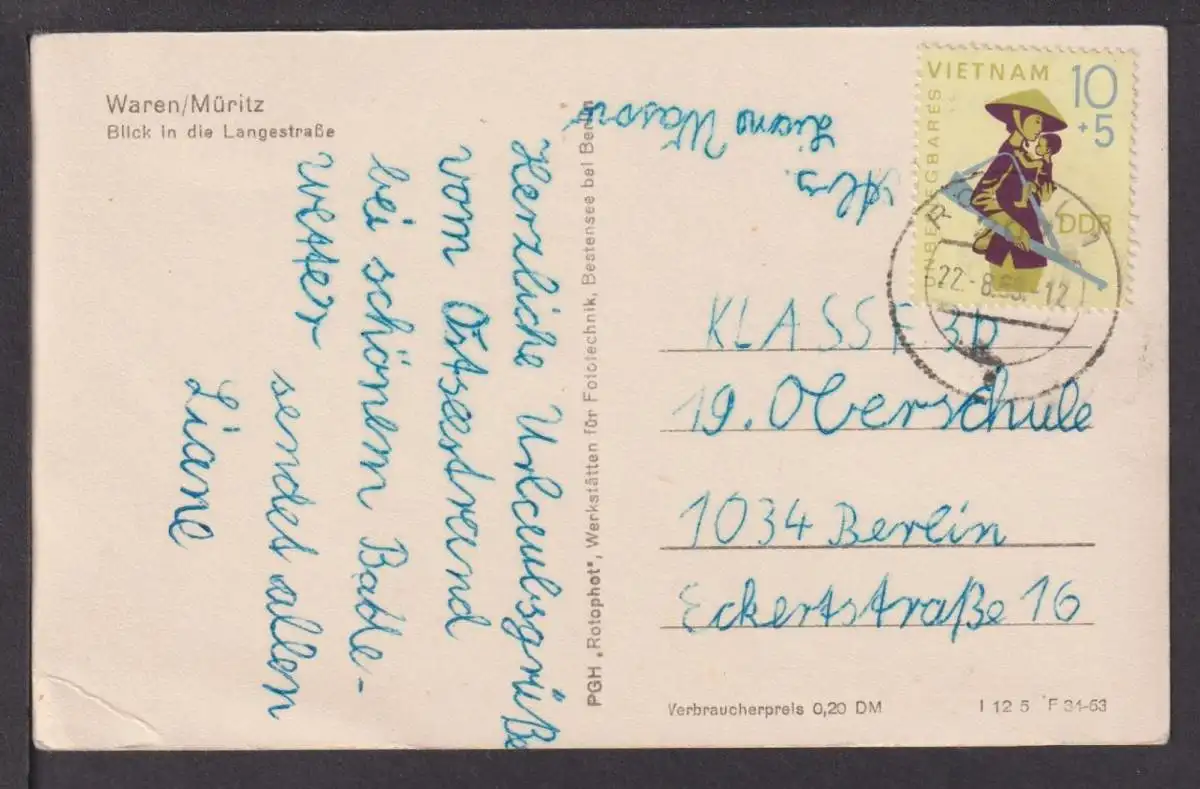 Waren/Müritz
Blick in die Langestraße
Herzliche Urlaubsgrüße
vom Ostseestrand
bei schönem Bade-
wetter
sendet allen
Liane
PGH „Rotophot", Werkstätten für Fototechnik, Bestensee bei Berlin
Abs.
Liane
VIETNAM
UNBESIEGBARES
10
+5
DDR
22.-8.69.-12
KLASSE 3b
19. Oberschule
1034 Berlin
Eckertstraße 16
Verbraucherpreis 0,20 DM
I 12 5 F 34-53